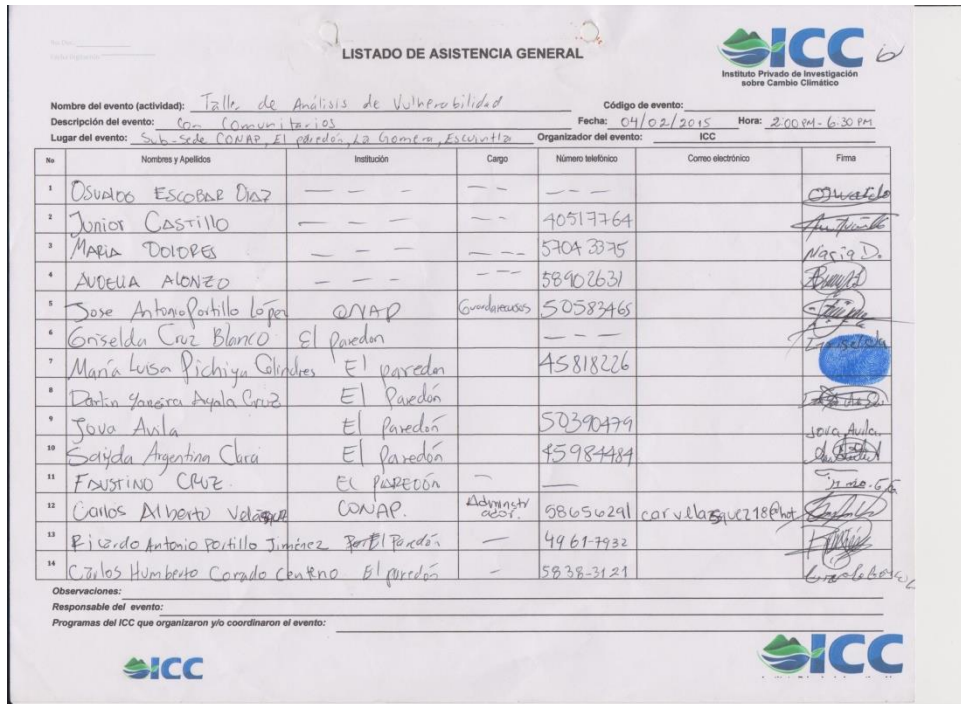 LISTADO DE ASISTENCIA GENERAL
ICC
Instituto Privado de Investigación
sobre Cambio Climático
Nombre del evento (actividad): Taller de Análisis de Vulnerabilidad Código de evento:
Descripción del evento: Con Comunitarios Fecha: 04/02/2015 Hora: 2:00 PM - 6:30 PM
Lugar del evento: Sub-Sede CONAP, El paredón, La Gomera, Escuintla Organizador del evento: ICC
No Nombres y Apellidos Institución Cargo Número telefónico Correo electrónico Firma
1 OSUALDO ESCOBAR DIAZ — — — — — — — — Oswaldo
2 Junior CASTILLO — — — — — 40517764
3 MARIA DOLORES — — — — — 5704 3375 Maria D.
4 AUDELIA ALONZO — — — 58902631
5 Jose Antonio Portillo López CONAP Guardarecursos 50583465
6 Griselda Cruz Blanco El Paredon — — Griselda
7 María Luisa Pichiya Colindres El paredon 45818226
8 Darlin Yaneira Ayala Cruz El Paredón
9 Jova Avila El Paredón 50390479 Jova Avila.
10 Sayda Argentina Clara El Paredón 45984484
11 FAUSTINO CRUZ. EL PAREDÓN — —
12 Carlos Alberto Velásquez CONAP. Administrador. 58656291 carvelazquez18@hot
13 Ricardo Antonio Portillo Jiménez El Paredón — 4961-7932
14 Carlos Humberto Corado Centeno El paredón — 5838-3121
Observaciones:
Responsable del evento:
Programas del ICC que organizaron y/o coordinaron el evento:
ICC
ICC